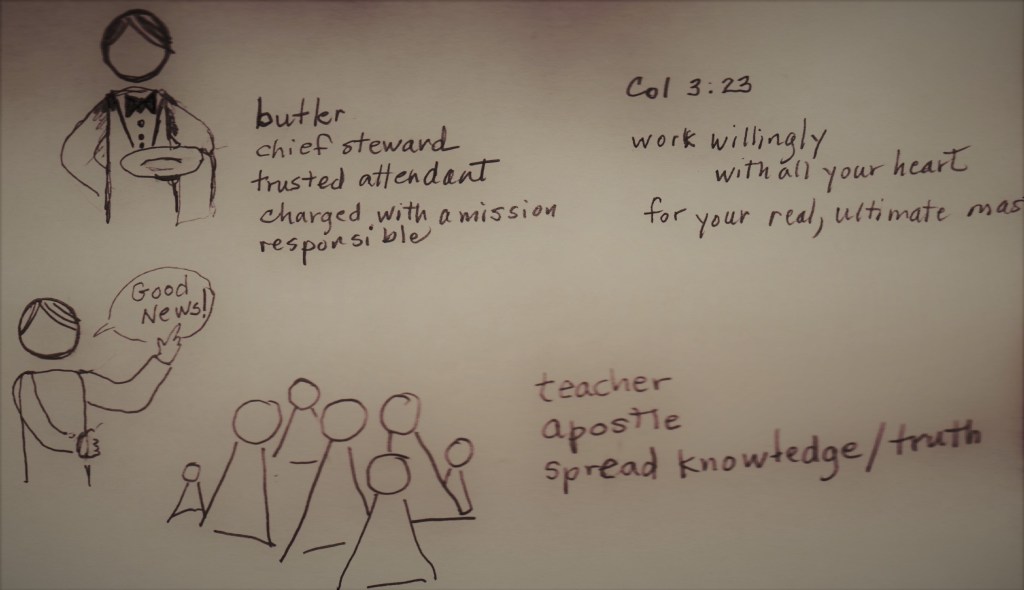 butler
chief steward
trusted attendant
charged with a mission
responsible
Col 3:23
work willingly
with all your heart
for your real, ultimate mas
Good
News!
teacher
apostle
spread knowledge/truth